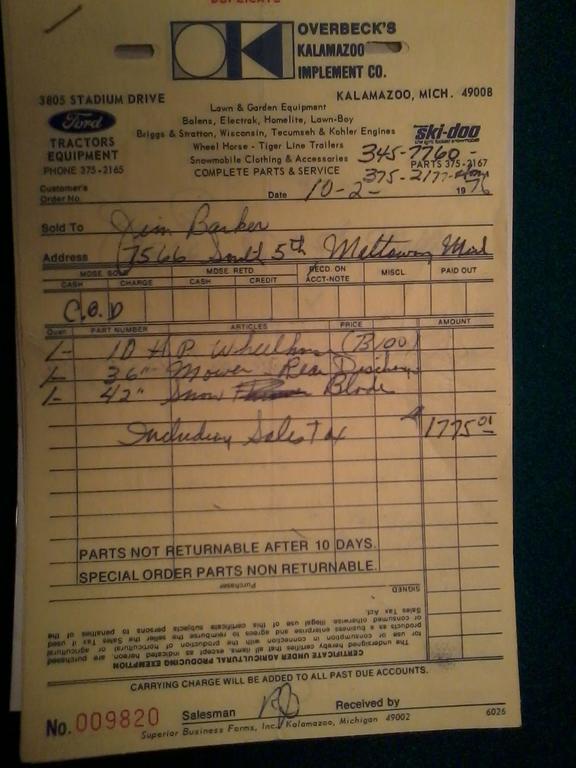 DUPLICATE
OK
OVERBECK'S
KALAMAZOO
IMPLEMENT CO.
3805 STADIUM DRIVE
KALAMAZOO, MICH. 49008
Ford
TRACTORS
EQUIPMENT
PHONE 375-2165
Lawn & Garden Equipment
Bolens, Electrak, Homelite, Lawn-Boy
Briggs & Stratton, Wisconsin, Tecumseh & Kohler Engines
Wheel Horse - Tiger Line Trailers
Snowmobile Clothing & Accessories
COMPLETE PARTS & SERVICE
ski-doo
345-7760-
PARTS 375-2167
375-2177-
Customer's
Order No.
Date 10-2- 1976
Sold To Jim Barker
Address 7566 South 5th Mattawan Mich
MDSE SOLD MDSE RETD RECD. ON ACCT-NOTE MISCL PAID OUT
CASH CHARGE CASH CREDIT
C.O.D
Quan. PART NUMBER ARTICLES PRICE AMOUNT
1- 10 H.P. Wheelhorse (B100)
1- 36" Mower Rear Discharge
1- 42" Snow Blade
Including Sales Tax 1775 01
PARTS NOT RETURNABLE AFTER 10 DAYS.
SPECIAL ORDER PARTS NON RETURNABLE.
CERTIFICATE UNDER AGRICULTURAL PRODUCING EXEMPTION
The undersigned hereby certifies that all items, except as indicated hereon, are purchased
for use or consumption in connection with the production of horticultural or agricultural
products as a business enterprise and agrees to reimburse the seller the Sales Tax if used
or consumed otherwise. Illegal use of this certificate subjects persons to penalties of the
Sales Tax Act.
SIGNED
Purchaser
CARRYING CHARGE WILL BE ADDED TO ALL PAST DUE ACCOUNTS.
No. 009820
Salesman Received by
Superior Business Forms, Inc., Kalamazoo, Michigan 49002
6026